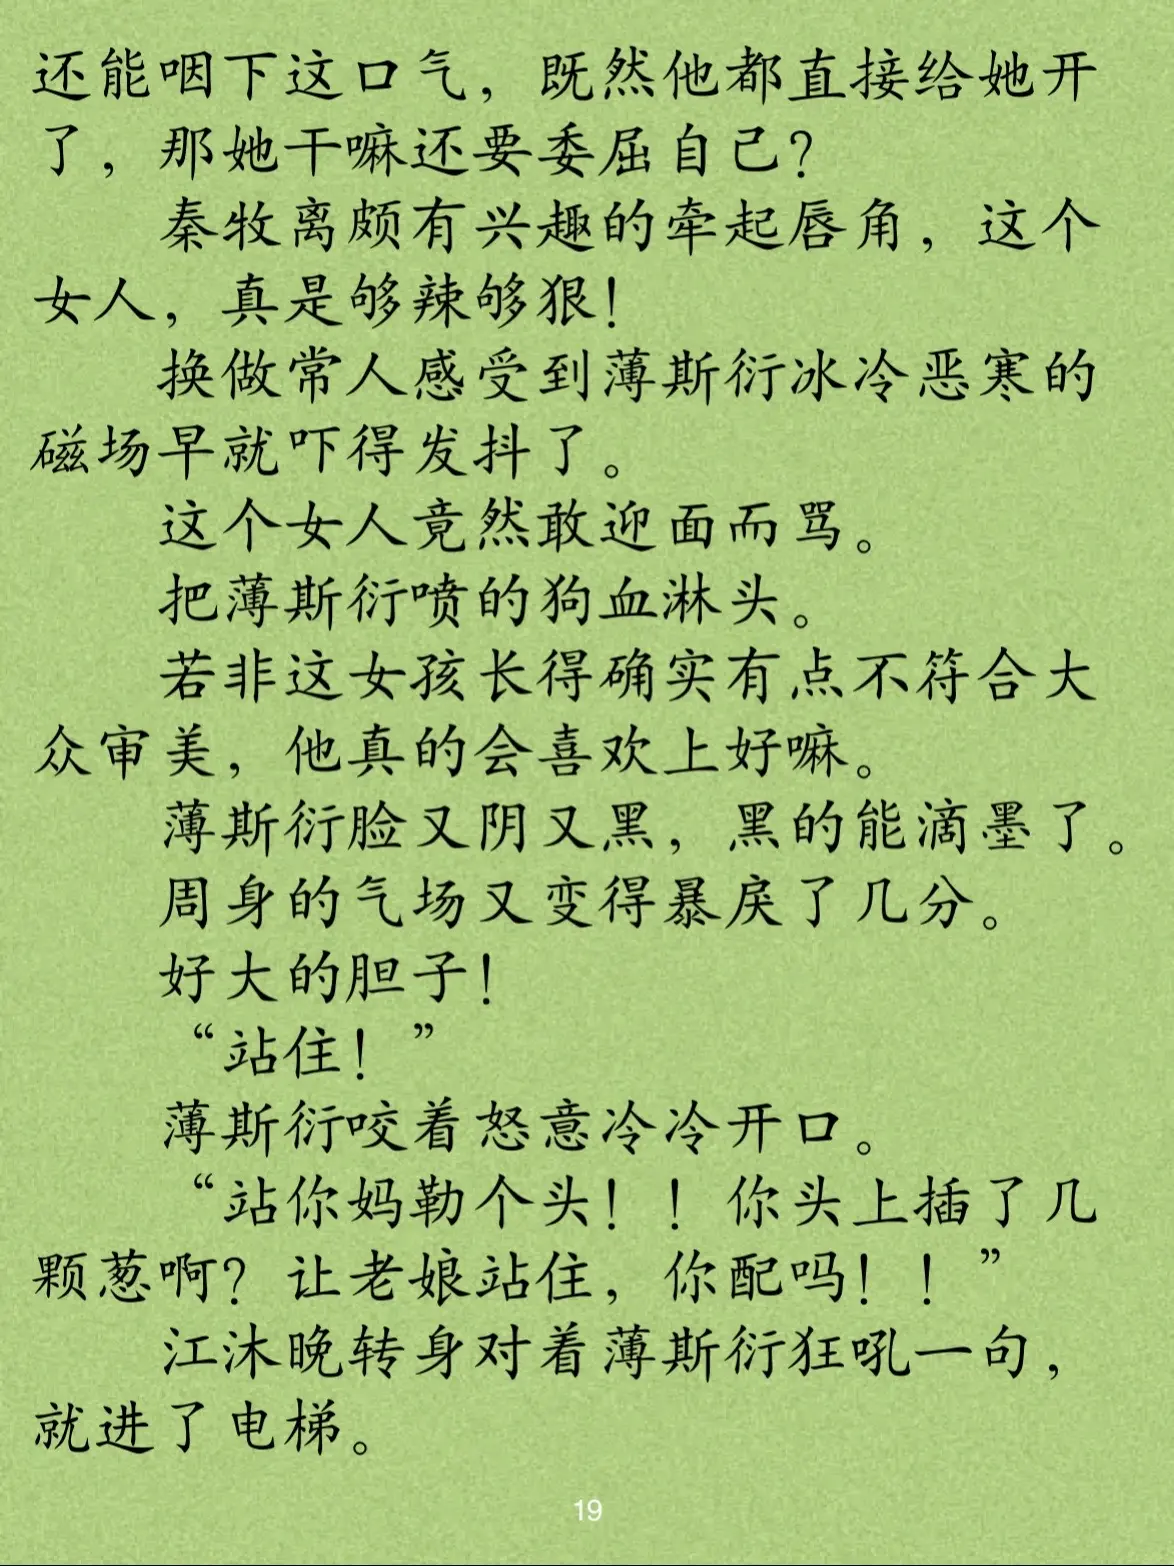 还能咽下这口气，既然他都直接给她开
了，那她干嘛还要委屈自己？
秦牧离颇有兴趣的牵起唇角，这个
女人，真是够辣够狠！
换做常人感受到薄斯衍冰冷恶寒的
磁场早就吓得发抖了。
这个女人竟然敢迎面而骂。
把薄斯衍喷的狗血淋头。
若非这女孩长得确实有点不符合大
众审美，他真的会喜欢上好嘛。
薄斯衍脸又阴又黑，黑的能滴墨了。
周身的气场又变得暴戾了几分。
好大的胆子！
“站住！”
薄斯衍咬着怒意冷冷开口。
“站你妈勒个头！！你头上插了几
颗葱啊？让老娘站住，你配吗！！”
江沐晚转身对着薄斯衍狂吼一句，
就进了电梯。
19